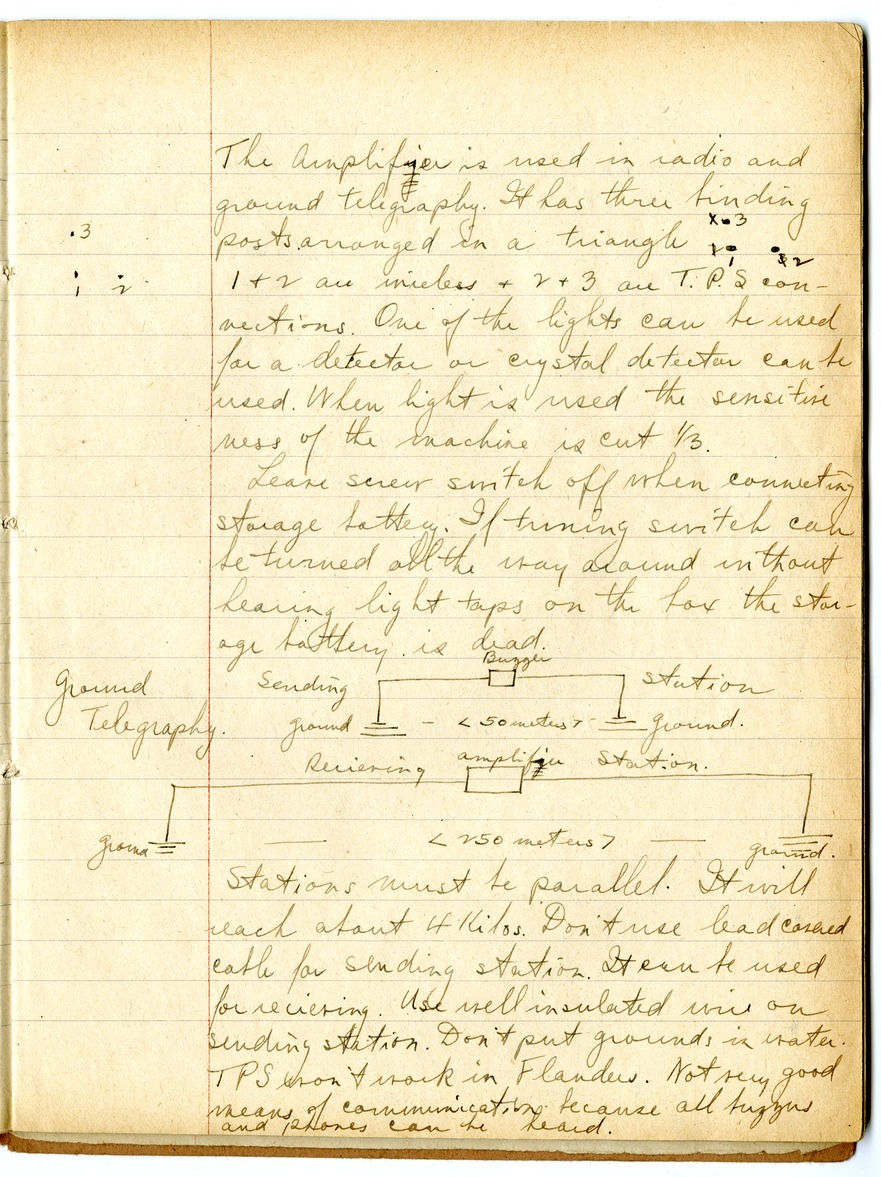 The Amplifier is used in radio and
ground telegraphy. It has three binding
posts arranged in a triangle x. 3
1 2
.3
1 2
1 + 2 are wireless + 2 + 3 are T.P.S con-
nections. One of the lights can be used
for a detector or crystal detector can be
used. When light is used the sensitive
ness of the machine is cut 1/3.
Leave screw switch off when connecting
storage battery. If tuning switch can
be turned all the way around without
hearing light taps on the box the stor-
age battery is dead.
Buzzer
Ground
Telegraphy.
Sending station
ground - < 50 meters > - ground.
Recieving amplifier Station.
ground — < 250 meters > — ground.
Stations must be parallel. It will
reach about 4 Kilos. Don't use lead covered
cable for sending station. It can be used
for recieving. Use well insulated wire on
sending station. Don't put grounds in water.
TPS won't work in Flanders. Not very good
means of communication because all buzzers
and phones can be heard.